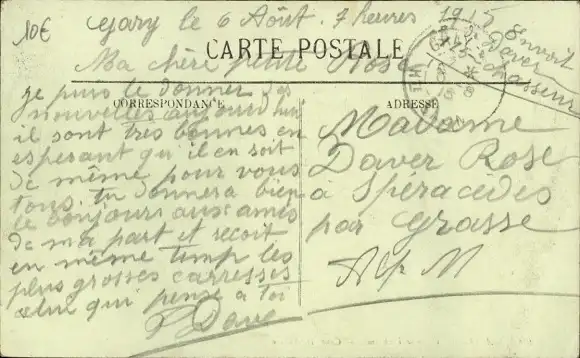 10€
Gary le 6 Août. 7 heures 1915
Envoit
Daver
chasseur
Ma chère petite Rose
CARTE POSTALE
CORRESPONDANCE
ADRESSE
je puis te donner des
nouvelles aujourd'hui
il sont tres bonnes en
esperant qu'il en soit
de même pour vous
tous. tu donnera bien
le bonjour aux amis
de ma part et recoit
en même temp les
plus grosses carresses
celui qui pense a toi
Dave
Madame
Daver Rose
a Spéracèdes
par Grasse
Alp M